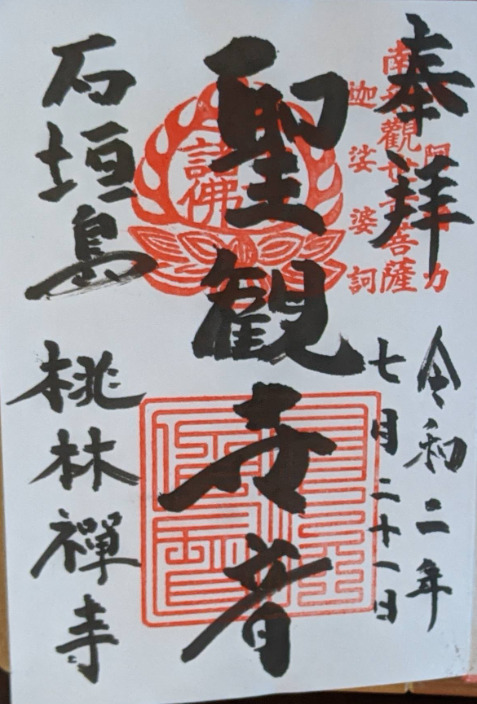 奉拝
令和二年
七月二十一日
南無觀世音菩薩
阿
力
迦娑婆訶
聖観世音
諸佛
石垣島
桃林禪寺